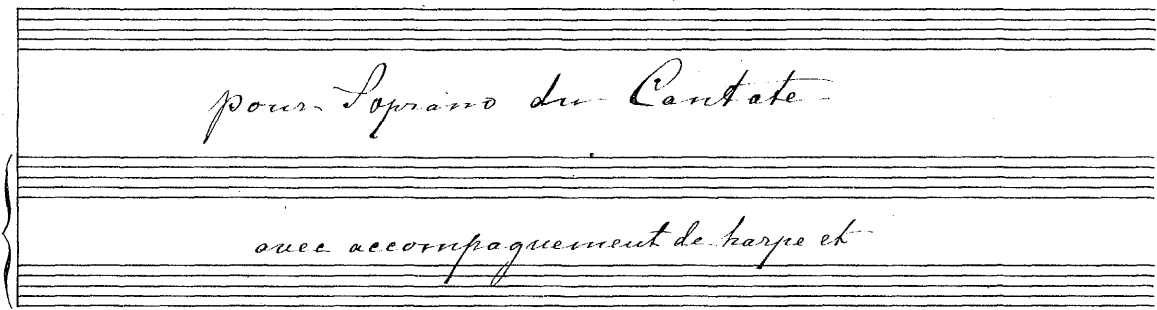 pour Soprano du Cantate
avec accompagnement de harpe et